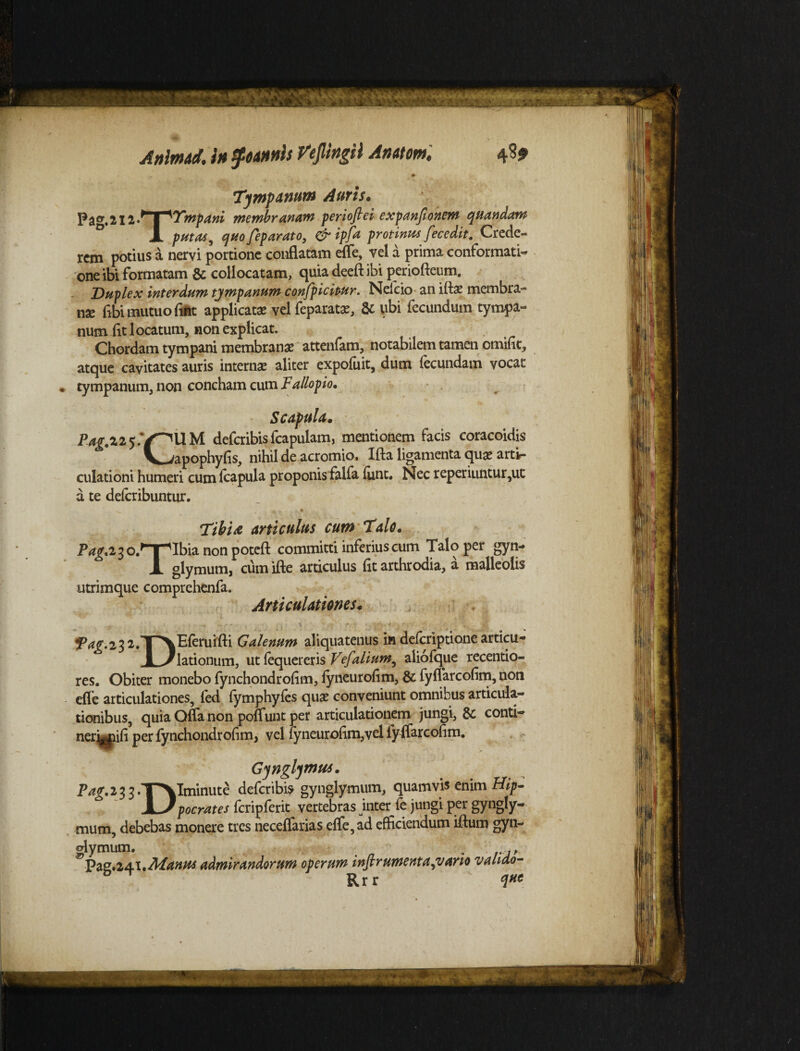 Animad. in Joannis Veslingii Anatom. 489
Tympanum Auris.
Pag.212. TYmpani membranam periostei expansionem quandam
putas, quo separato, & ipsa protinus secedit. Crede-
rem potius à nervi portione conflatam esse, vel à prima conformati-
one ibi formatam & collocatam, quia deest ibi periosteum.
Duplex interdum tympanum conspicitur. Nescio an istæ membra-
næ sibi mutuo sint applicatæ vel separatæ, & ubi secundum tympa-
num sit locatum, non explicat.
Chordam tympani membranæ attensam, notabilem tamen omisit,
atque cavitates auris internæ aliter exposuit, dum secundam vocat
tympanum, non concham cum Fallopio.
Scapula.
Pag.225. CUM describis scapulam, mentionem facis coracoidis
apophysis, nihil de acromio. Ista ligamenta quæ arti-
culationi humeri cum scapula proponis falsa sunt. Nec reperiuntur, ut
à te describuntur.
Tibiæ articulus cum Talo.
Pag.230. TIbia non potest committi inferius cum Talo per gyn-
glymum, cùm iste articulus sit arthrodia, à malleolis
utrimque comprehensa.
Articulationes.
Pag.232. DEseruisti Galenum aliquatenus in descriptione articu-
lationum, ut sequereris Vesalium, aliósque recentio-
res. Obiter monebo synchondrosim, syneurosim, & syssarcosim, non
esse articulationes, sed symphyses quæ conveniunt omnibus articula-
tionibus, quia Ossa non possunt per articulationem jungi, & conti-
neri, nisi per synchondrosim, vel syneurosim, vel syssarcosim.
Gynglymus.
Pag.233. DIminutè describis gynglymum, quamvis enim Hip-
pocrates scripserit vertebras inter se jungi per gyngly-
mum, debebas monere tres necessarias esse, ad efficiendum istum gyn-
glymum.
Pag.241. Manus admirandorum operum instrumenta, vario valido-
Rrr que